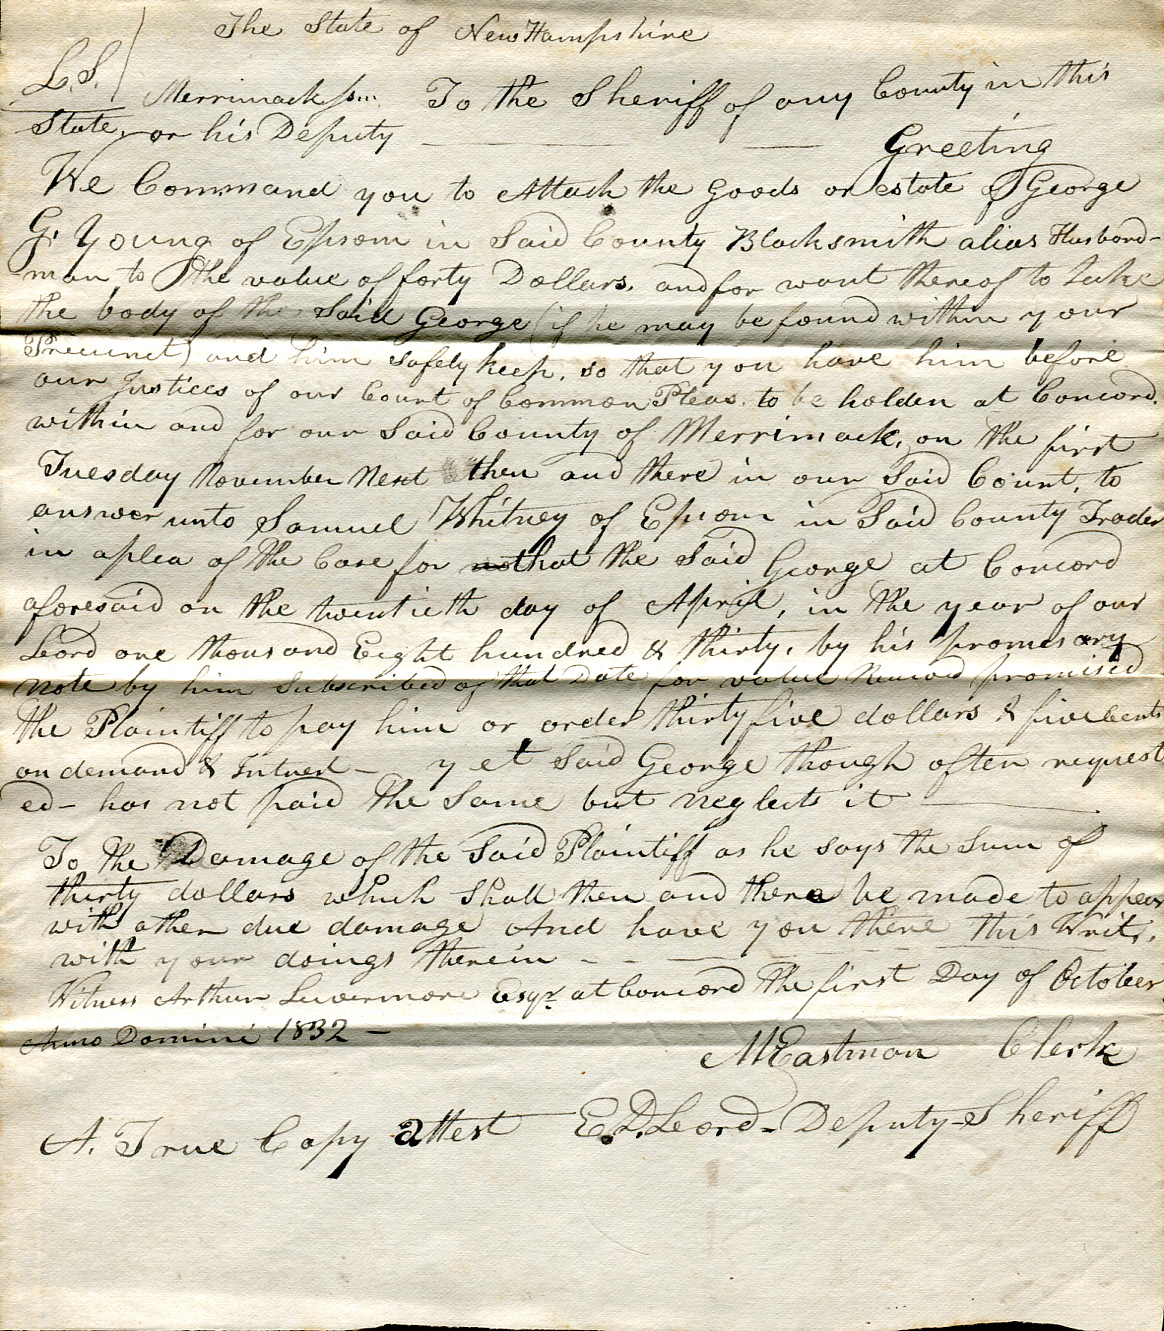 The State of New Hampshire
L.S.
Merrimack ss. To the Sheriff of any County in this
State, or his Deputy — Greeting
We Command you to Attach the goods or estate of George
G. Young of Epsom in Said County Blacksmith alias Husband-
man to the value of forty Dollars, and for want thereof to take
the body of the Said George (if he may be found within your
Precinct) and him safely keep, so that you have him before
our Justices of our Court of Common Pleas. to be holden at Concord.
within and for our Said County of Merrimack, on the first
Tuesday November Next then and there in our Said Court, to
answer unto Samuel Whitney of Epsom in Said County Trader
in a plea of the Case for that the Said George at Concord
aforesaid on the twentieth day of April, in the year of our
Lord one thousand Eight hundred & thirty, by his promisary
note by him Subscribed of that Date for value Received promised
the Plaintiff to pay him or order thirty five dollars & five cents
on demand & Interest — yet Said George though often request
ed — has not paid the Same but neglects it
To the Damage of the Said Plaintiff as he says the Sum of
thirty dollars which Shall then and there be made to appear
with other due damage And have you there this Writ,
with your doings therein - - —
Witness Arthur Livermore Esqr. at Concord the first Day of October
Anno Domini 1832 —
M Eastman Clerk
A. True Copy attest E.D. Leord - Deputy - Sheriff